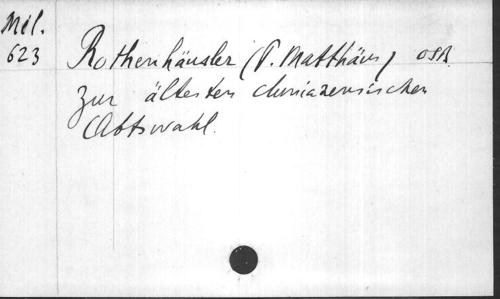 Mél. 623
Rothenhäusler (P. Matthäus) OSB.
Zur ältesten cluniazensischen
Abtswahl.